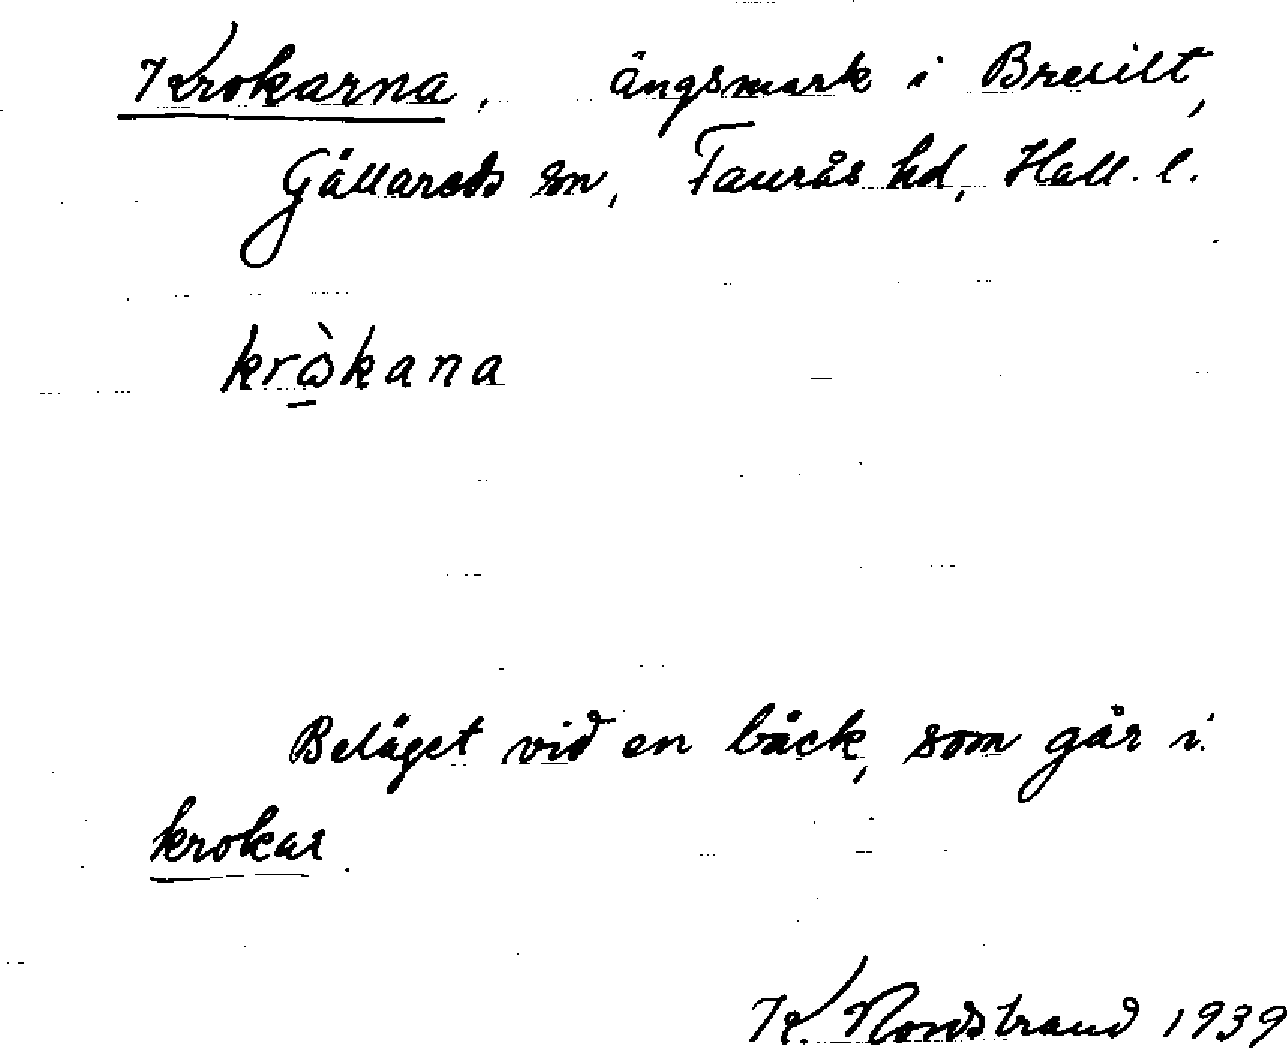 Krokarna, ängsmark i Bresilt,
Gällareds sn, Faurås hd, Hall. l.
krὼ̱kana
Beläget vid en bäck, som går i
krokar.
K. Nordstrand 1939